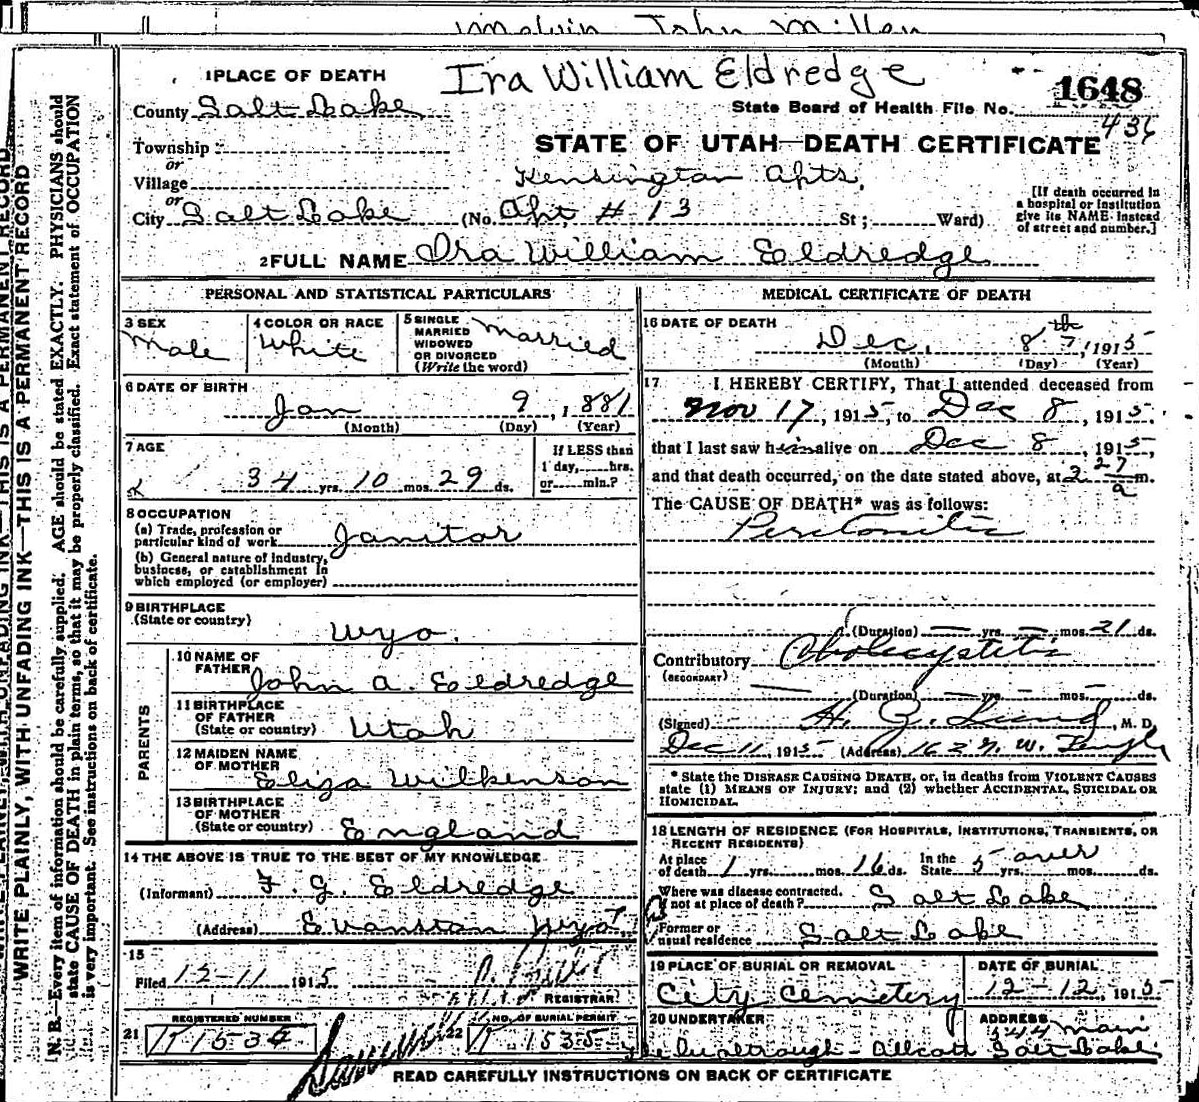 Melvin John Miller
Ira William Eldredge
1 PLACE OF DEATH
County Salt Lake
State Board of Health File No. 1648
436
STATE OF UTAH—DEATH CERTIFICATE
Township
or
Village
Kensington Apts.
or
City Salt Lake (No. Apt # 13 St; Ward)
[If death occurred in
a hospital or institution
give its NAME instead
of street and number.]
2 FULL NAME Ira William Eldredge
PERSONAL AND STATISTICAL PARTICULARS
3 SEX
Male
4 COLOR OR RACE
White
5 SINGLE
MARRIED
WIDOWED
OR DIVORCED
(Write the word)
Married
6 DATE OF BIRTH
Jan 9, 1881
(Month) (Day) (Year)
7 AGE
34 yrs. 10 mos. 29 ds.
If LESS than
1 day, hrs.
or min.?
8 OCCUPATION
(a) Trade, profession or
particular kind of work Janitor
(b) General nature of industry,
business, or establishment in
which employed (or employer)
9 BIRTHPLACE
(State or country)
Wyo.
PARENTS
10 NAME OF
FATHER
John A. Eldredge
11 BIRTHPLACE
OF FATHER
(State or country)
Utah
12 MAIDEN NAME
OF MOTHER
Eliza Wilkenson
13 BIRTHPLACE
OF MOTHER
(State or country)
England
14 THE ABOVE IS TRUE TO THE BEST OF MY KNOWLEDGE
(Informant) F. G. Eldredge
(Address) Evanston Wyo.
15
Filed 12-11 1915
REGISTRAR
REGISTERED NUMBER
21
NO. OF BURIAL PERMIT
22 1535
MEDICAL CERTIFICATE OF DEATH
16 DATE OF DEATH
Dec. 8th, 1915
(Month) (Day) (Year)
17 I HEREBY CERTIFY, That I attended deceased from
Nov 17, 1915, to Dec 8, 1915,
that I last saw him alive on Dec 8, 1915,
and that death occurred, on the date stated above, at 2 27 a m.
The CAUSE OF DEATH* was as follows:
Peritonitis
(Duration) — yrs. — mos. 21 ds.
Contributory Cholecystitis
(SECONDARY)
(Duration) — yrs. — mos. — ds.
(Signed) H. Z. Lund, M. D.
Dec 11, 1915 (Address) 162 N. W. Temple
* State the DISEASE CAUSING DEATH, or, in deaths from VIOLENT CAUSES
state (1) MEANS OF INJURY; and (2) whether ACCIDENTAL, SUICIDAL OR
HOMICIDAL.
18 LENGTH OF RESIDENCE (FOR HOSPITALS, INSTITUTIONS, TRANSIENTS, OR
RECENT RESIDENTS)
At place
of death 1 yrs. mos. 16 ds. In the
State 5 over yrs. mos. ds.
Where was disease contracted,
if not at place of death? Salt Lake
Former or
usual residence Salt Lake
19 PLACE OF BURIAL OR REMOVAL
City Cemetery
DATE OF BURIAL
12-12, 1915
20 UNDERTAKER
ADDRESS
544 Main
Salt Lake
READ CAREFULLY INSTRUCTIONS ON BACK OF CERTIFICATE
WRITE PLAINLY, WITH UNFADING INK—THIS IS A PERMANENT RECORD
N. B.—Every item of information should be carefully supplied. AGE should be stated EXACTLY. PHYSICIANS should
state CAUSE OF DEATH in plain terms, so that it may be properly classified. Exact statement of OCCUPATION
is very important. See instructions on back of certificate.